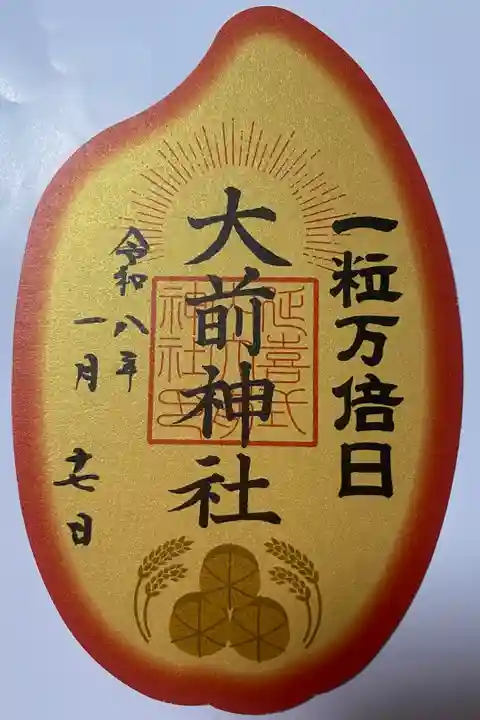 一粒万倍日
大前神社
延喜式
神社
令和八年
一月
十七日